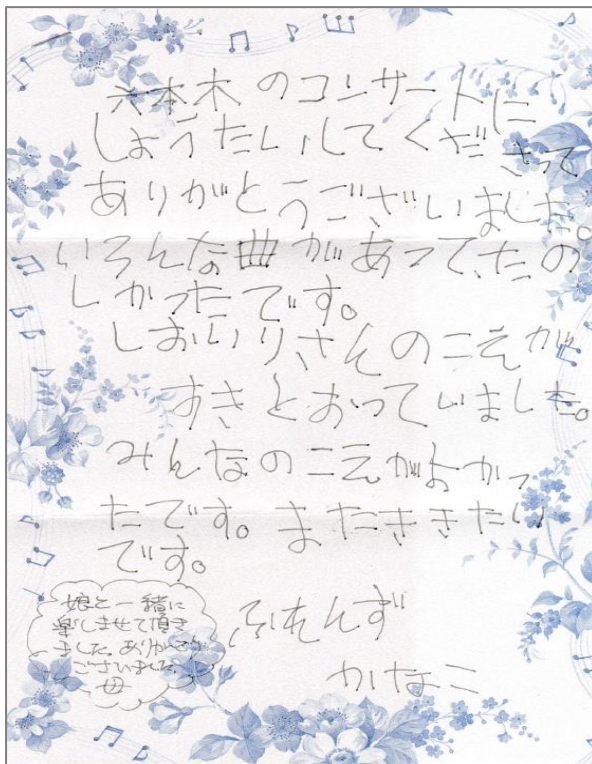 六本木のコンサートに
しょうたいしてくださって
ありがとうございました。
いろんな曲があって、たの
しかったです。
しおいりさんのこえが
すきとおっていました。
みんなのこえがよかっ
たです。またききたい
です。
ふれんず
かなこ
娘と一緒に
楽しませて頂き
ました。ありがとう
ございました。
母